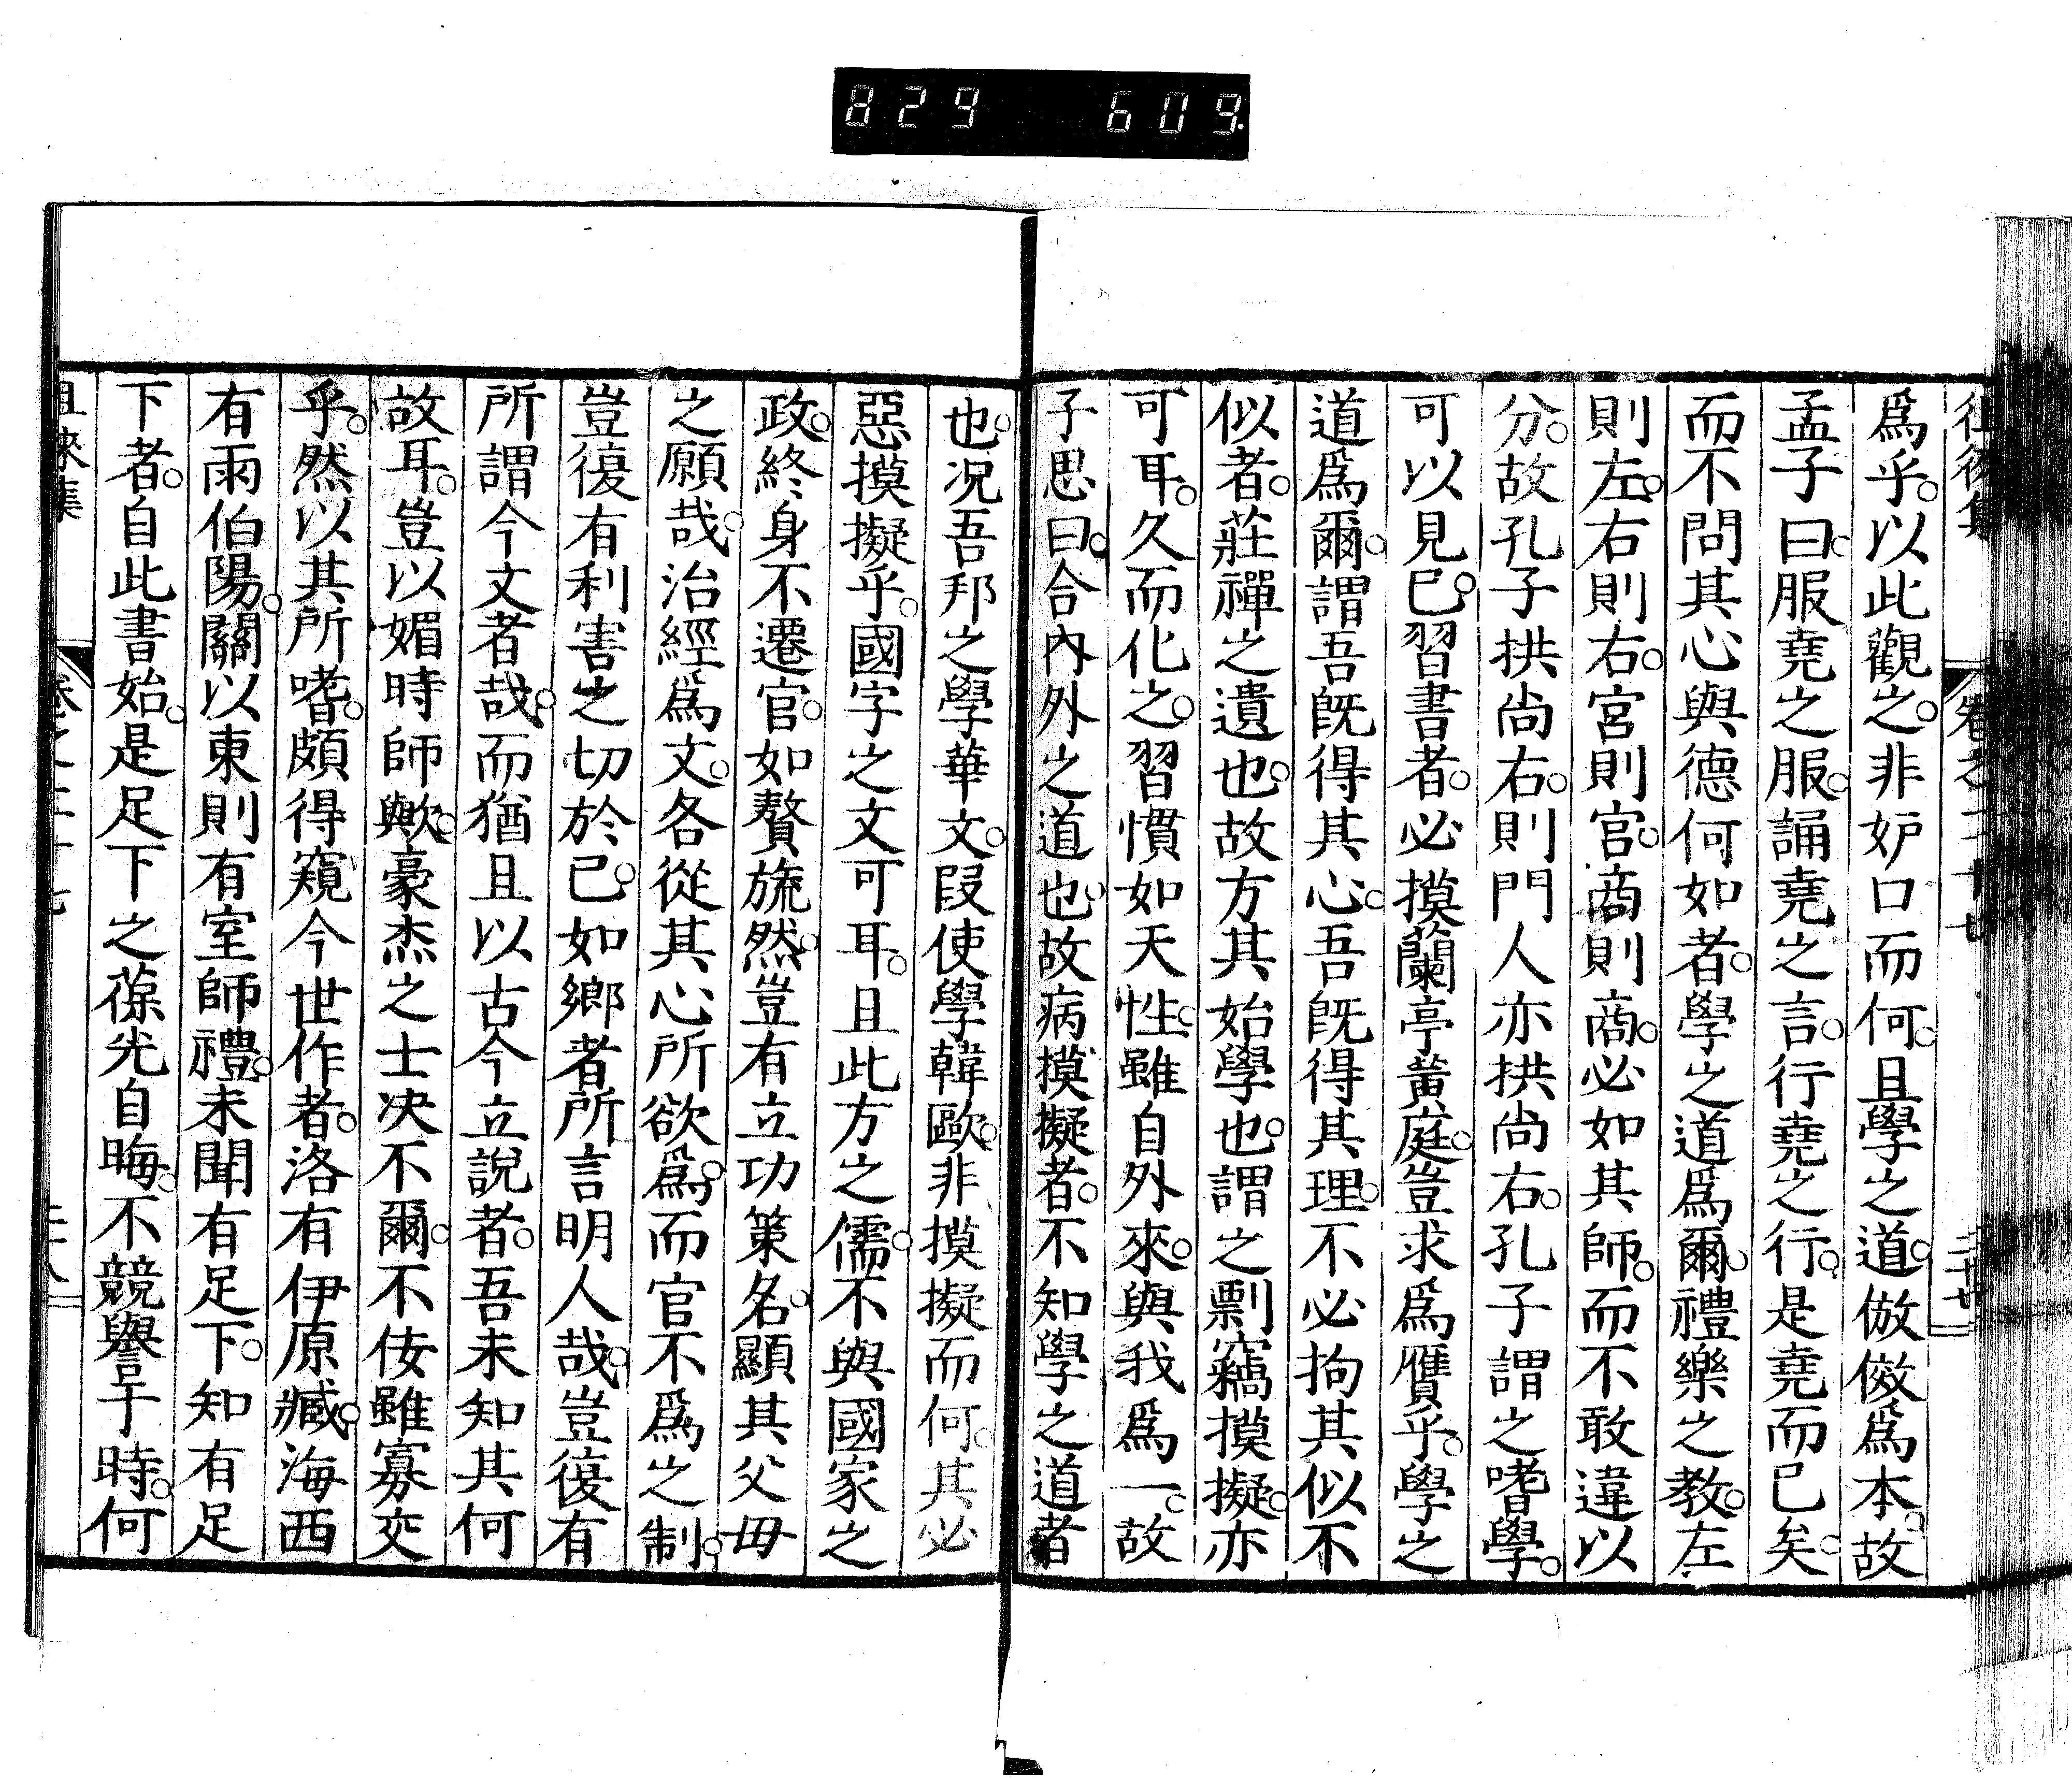 829 609
爲乎。以此觀之。非妒口而何。且學之道。倣傚爲本。故
孟子曰。服堯之服。誦堯之言。行堯之行。是堯而已矣。
而不問其心與德何如者。學之道爲爾。禮樂之教。左
則左。右則右。宮則宮。商則商。必如其師。而不敢違以
分。故孔子拱尚右。則門人亦拱尚右。孔子謂之嗜學。
可以見已。習書者。必摸蘭亭黃庭。豈求爲贗乎。學之
道爲爾。謂吾既得其心。吾既得其理。不必拘其似不
似者。莊禪之遺也。故方其始學也。謂之剽竊摸擬。亦
可耳。久而化之。習慣如天性。雖自外來。與我爲一。故
子思曰。合內外之道也。故病摸擬者。不知學之道者
也。况吾邦之學華文。叚使學韓歐。非摸擬而何。其必
惡摸擬乎。國字之文可耳。且此方之儒。不與國家之
政。終身不遷官。如贅旒然。豈有立功策名。顯其父母
之願哉。治經爲文。各從其心所欲爲。而官不爲之制。
豈復有利害之切於己。如鄉者所言明人哉。豈復有
所謂今文者哉。而猶且以古今立說者。吾未知其何
故耳。豈以媚時師歟。豪杰之士决不爾。不佞雖寡交
乎。然以其所嗜。頗得窺今世作者。洛有伊原臧。海西
有雨伯陽。關以東則有室師禮。未聞有足下。知有足
下者。自此書始。是足下之葆光自晦。不競譽于時。何
徂徠集
卷之二十七